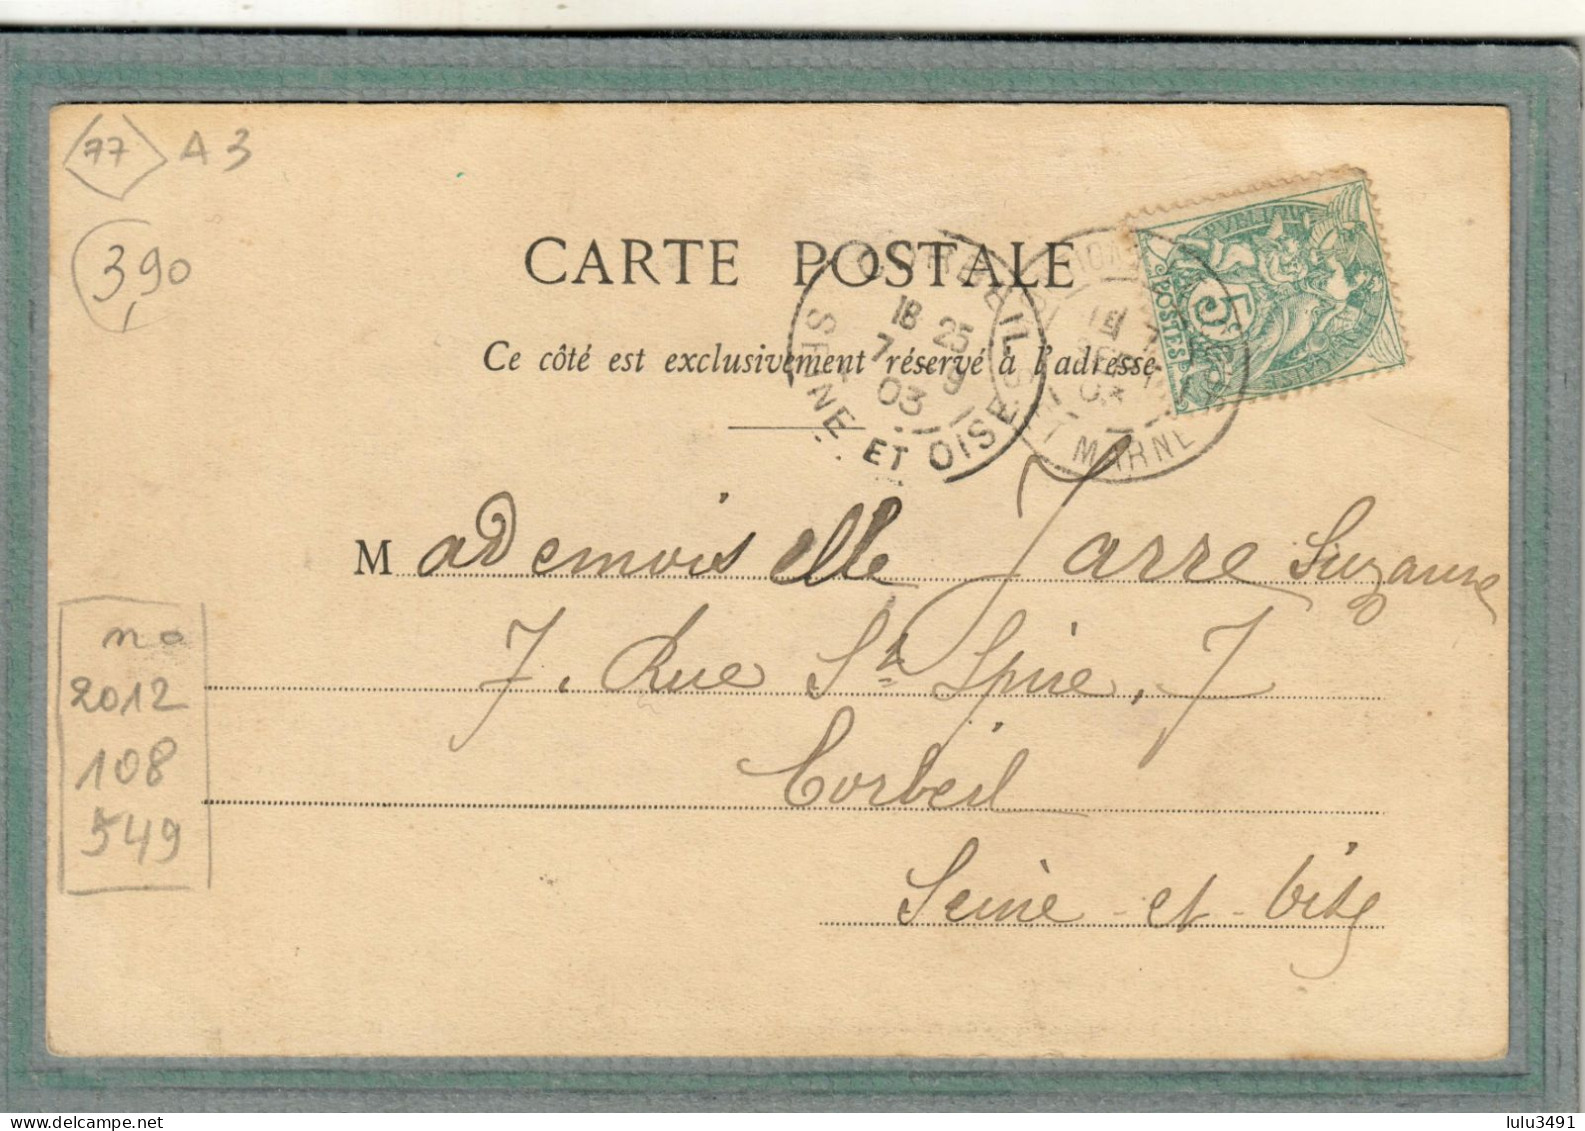 77 A 3
3,90
CARTE POSTALE
Ce côté est exclusivement réservé à l'adresse
CORBEIL
18 25
7 9
03
SEINE ET OISE
ET MARNE
RÉPUBLIQUE FRANÇAISE
5
POSTES
Mademoiselle Jarre Suzanne
7. Rue St Spire, 7
Corbeil
Seine-et-Oise
no
2012
108
549
lulu3491